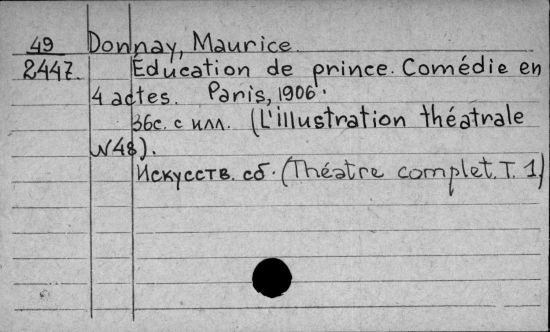 49 Donnay, Maurice.
2447. Education de prince. Comédie en
4 actes. Paris, 1906.
36с. с илл. (L'illustration théatrale
N48).
Искусств. сб. (Théatre complet. T. 1)